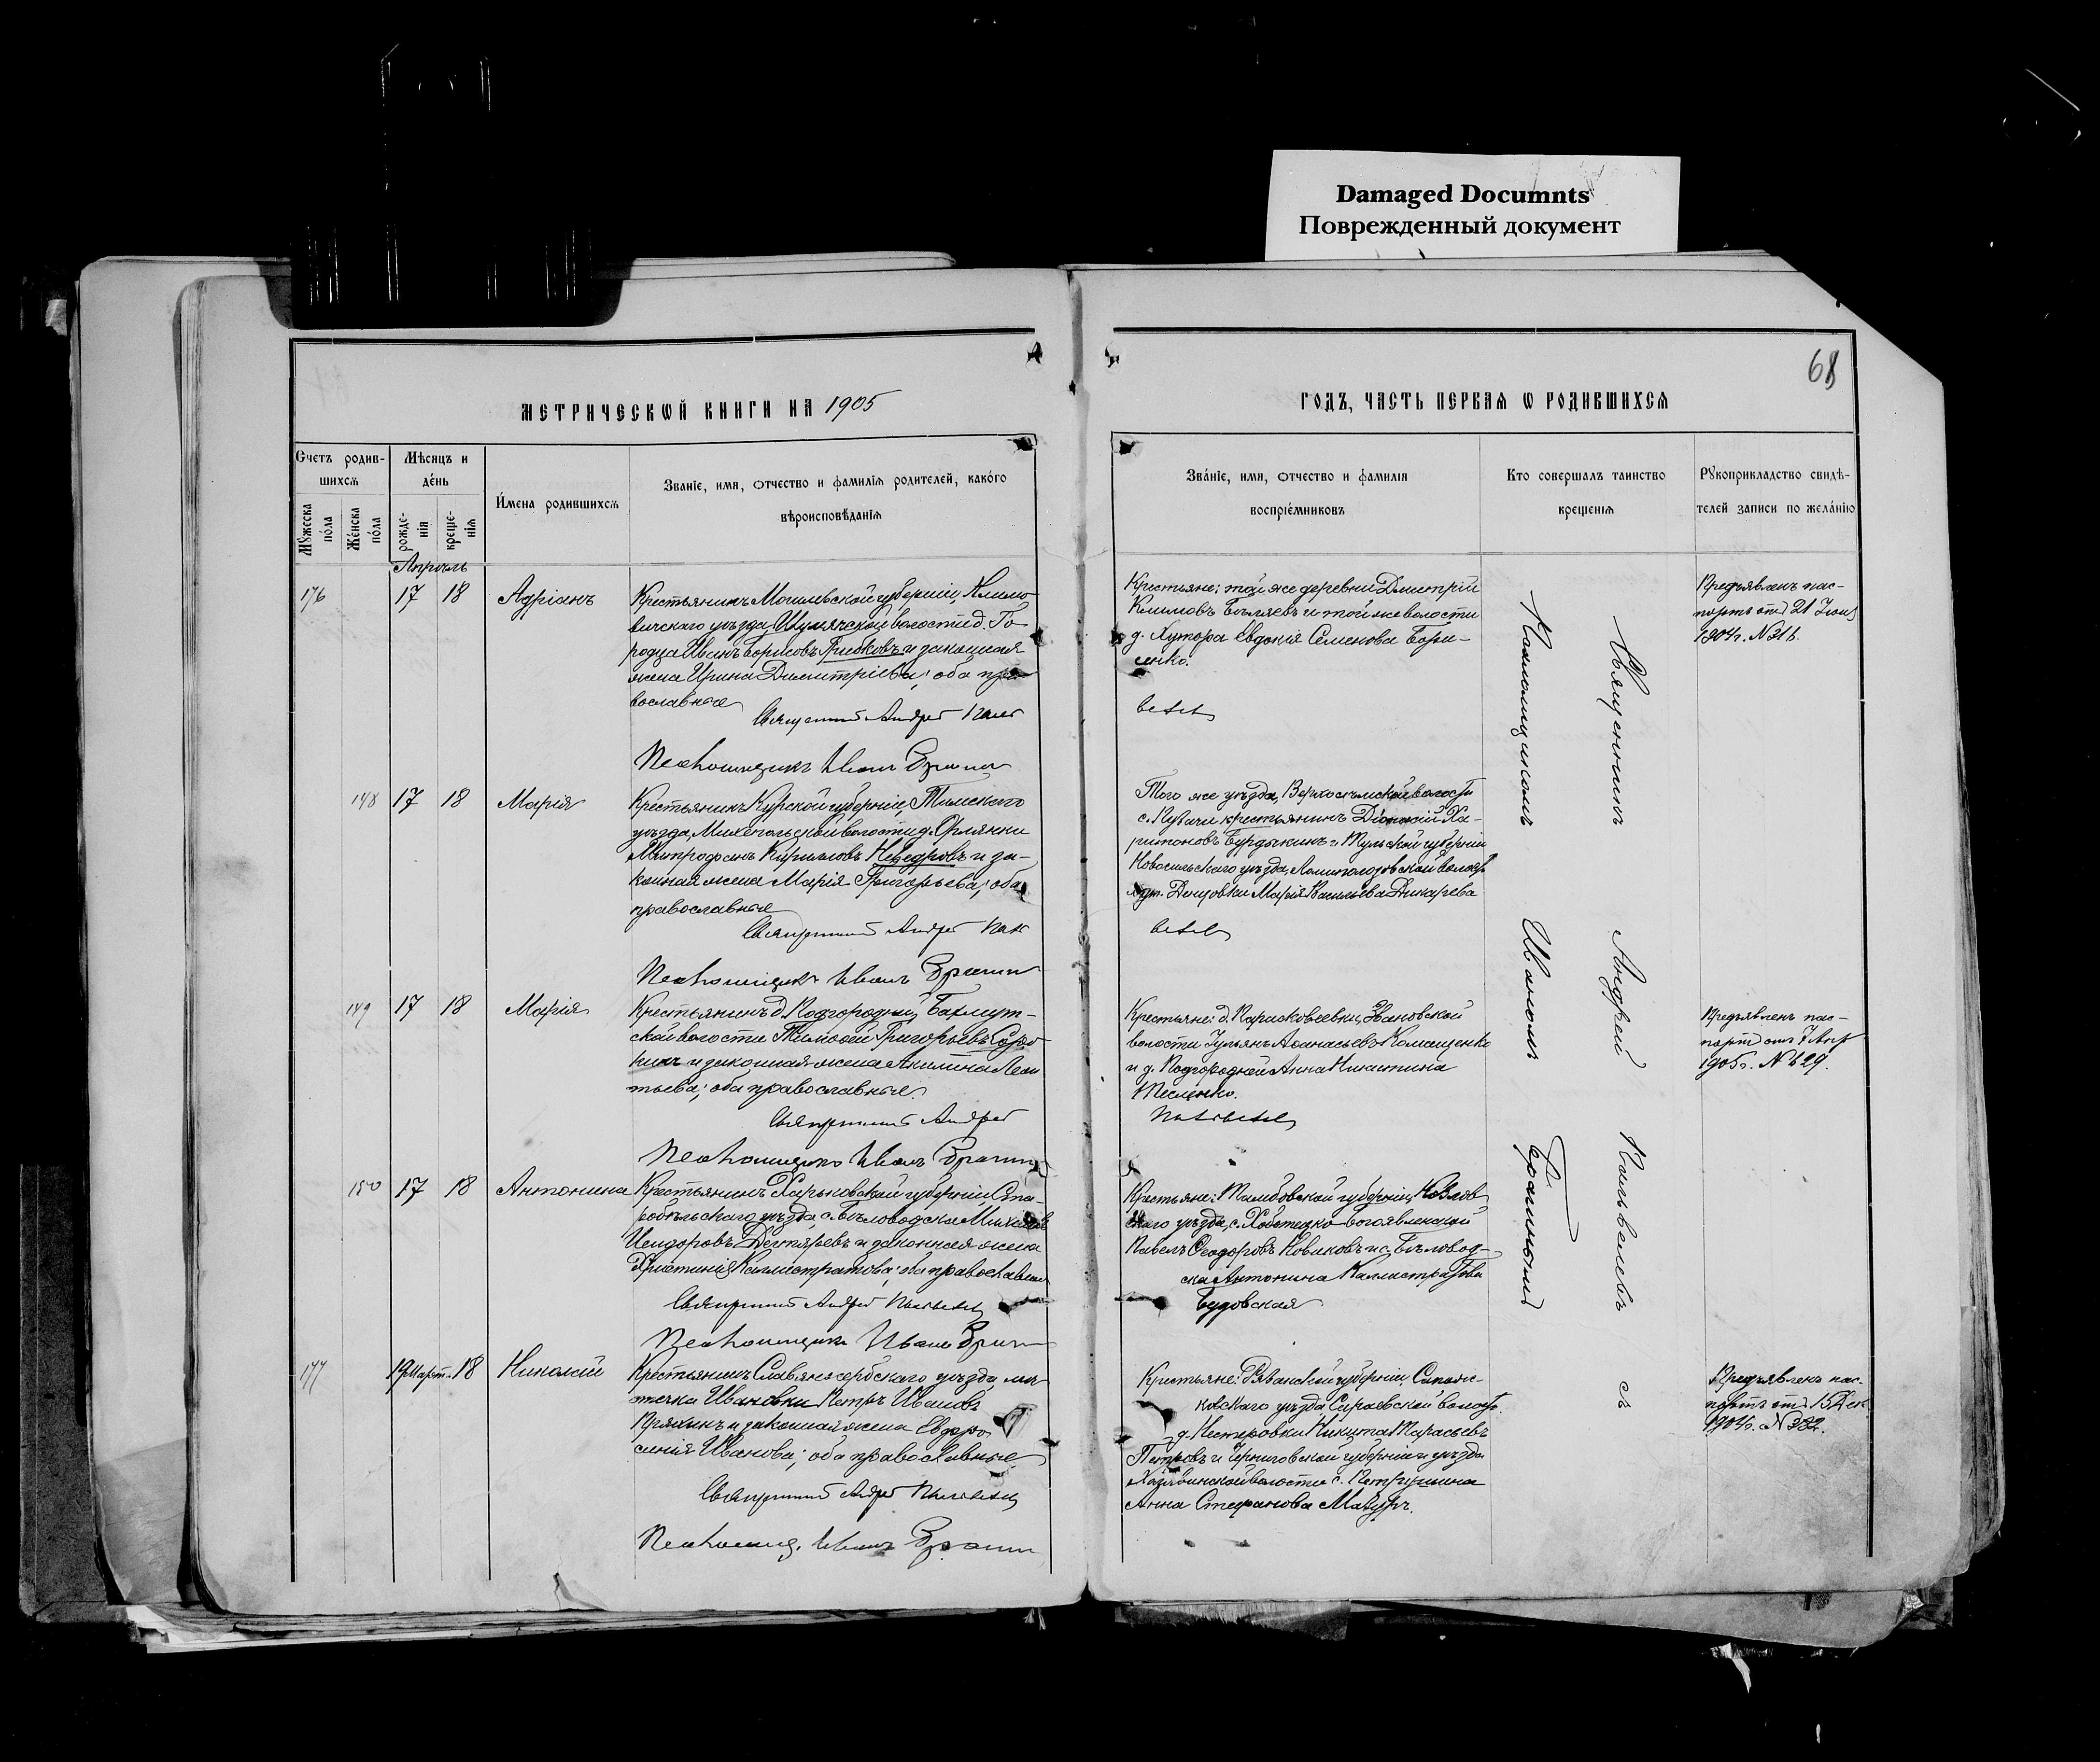 Damaged Documnts
Поврежденный документ
68
МЕТРИЧЕСКОЙ КНИГИ НА 1905
ГОДЪ, ЧАСТЬ ПЕРВАЯ Ѡ РОДИВШИХСЯ
Счетъ родив-
шихся
Мѣсяцъ и
де́нь
Мꙋжеска
по́ла
Же́нска
по́ла
рожде-
нія
креще-
нія
И́мена родившихся
Званіе, имя, ѻтчество и фамилія родителей, како́го
вѣроисповѣ́данія
Зва́ніе, имя, ѻтчество и фамилія
воспріе́мниковъ
Кто совершалъ таинство
крещенія
Рꙋкоприкладство свидѣ-
телей записи по жела́нію
Апрѣль
176 17 18 Адріанъ
Крестьянинъ Могилевской губерніи, Климо-
вичскаго уѣзда, Шумячской волости д. Го-
родца Иванъ Борисовъ Грибковъ и законная
жена Ирина Димитріева; оба пра-
вославные
Священникъ Андрей
Псаломщикъ Иванъ Брагинъ
Крестьяне: той же деревни Дмитрій
Климовъ Бѣляевъ и той же волости
д. Хутора Евдокія Семенова Бори-
сенко.
Предъявленъ пас-
портъ отъ 21 Іюня
1904г. №316.
148 17 18 Марія
Крестьянинъ Курской губерніи, Тимского
уѣзда, Михепольской волости д. Орлянки
Митрофанъ Кирилловъ Невѣдровъ и за-
конная жена Марія Григорьева; оба
православные
Священникъ Андрей
Псаломщикъ Иванъ Брагинъ
Того же уѣзда, Верхосемской волости
с. Пузачи крестьянинъ Діонисій Ха-
ритоновъ Бурдыкинъ и Тульской губерніи
Новосильскаго уѣзда,
Марія Васильева Дикарева
149 17 18 Марія
Крестьянинъ д. Подгородней, Бахмут-
ской волости Тимофей Григорьевъ
и законная жена Акилина Леон-
тьева; оба православные.
Священникъ Андрей
Псаломщикъ Иванъ Брагинъ
Крестьяне: д. Парасковеевки, Звановской
волости Іульянъ Афанасьевъ Комащенко
и д. Подгородней Анна Никитина
Тесленко.
Предъявленъ пас-
портъ отъ 7 Апр
1905г. №629.
150 17 18 Антонина
Крестьянинъ Харьковской губерніи, Ста-
робѣльскаго уѣзда, с. Бѣловодска Михаилъ
Исидоровъ Дегтяревъ и законная жена
Христина Каллистратова; оба православные
Священникъ Андрей
Псаломщикъ Иванъ Брагинъ
Крестьяне: Тамбовской губерніи, Козлов-
скаго уѣзда, с. Хоботецко-Богоявленской
Павелъ Ѳеодоровъ Новиковъ и с. Бѣловод-
ска Антонина Каллистратова
Будовская
177 19 Март. 18 Николай
Крестьянинъ Славяносербскаго уѣзда, мѣ-
стечка Ивановки Петръ Ивановъ
Пряхинъ и законная жена Евфро-
синія Иванова; оба православные
Священникъ Андрей
Псаломщ. Иванъ Брагинъ
Крестьяне: Рязанской губерніи, Сапож-
ковскаго уѣзда Сараевской волости
д. Нестеровки Никита Тарасьевъ
Петровъ и Черниговской губерніи и уѣзда
волости с.
Анна Стефанова Мазуръ.
Предъявленъ пас-
портъ отъ 15 Дек.
1904г. №382.
Священникъ Андрей съ
Псаломщикомъ Иваномъ Брагинымъ